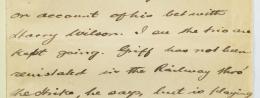 on account of his bet with
Harry Wilson. I see the trio are
kept going. Griff has not been
reinstated in the Railway thro'
the Strike, he says, but is playing